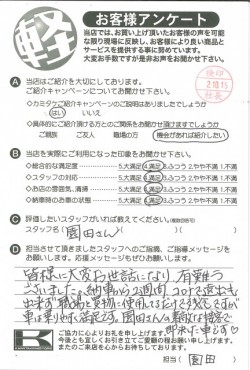 軽
お客様アンケート
当店では、お買い上げ頂いたお客様の声を可能
な限り現場に反映し、お客様により良い商品と
サービスを提供する事に努めています。
大変お手数ですが是非お声をお聞かせ下さい。
A 当店はご紹介を大切にしてあります。
ご紹介キャンペーンについてお聞かせ下さい。
◇カミタケご紹介キャンペーンのご説明はありましたでしょうか
はい いいえ
◇具体的にご紹介頂ける方とのご関係をお聞かせ頂けますでしょうか
ご親族 ご友人 職場の方 機会があれば紹介したい
2.10.15
社長
B 当店を実際にご利用になられた印象をお聞かせ下さい。
◇総合的な満足度 5.大満足 4.満足 3.ふつう 2.やや不満 1.不満
◇スタッフの対応 5.大満足 4.満足 3.ふつう 2.やや不満 1.不満
◇お店の雰囲気、清掃 5.大満足 4.満足 3.ふつう 2.やや不満 1.不満
◇納車時のお車の状態 5.大満足 4.満足 3.ふつう 2.やや不満 1.不満
C 評価したいスタッフがいれば教えてください。
スタッフ名( 園田さん )
D 担当させて頂きましたスタッフへのご指摘、ご指導メッセージを
お願いします。応援メッセージもぜひお願いします。
皆様に大変お世話になり、有難う
ございました。納車から2週間、コロナで遠出も
出来ず職場と買物に使用してるだけですが
車は乗りやすく満足です。園田さんは親切丁寧で
ご協力に心よりお礼を申し上げます。
今後とも宜しくお引き立てご愛顧の程お願い申し上げます。
またのご来店を心からお待ちしております。
担当( 園田 )